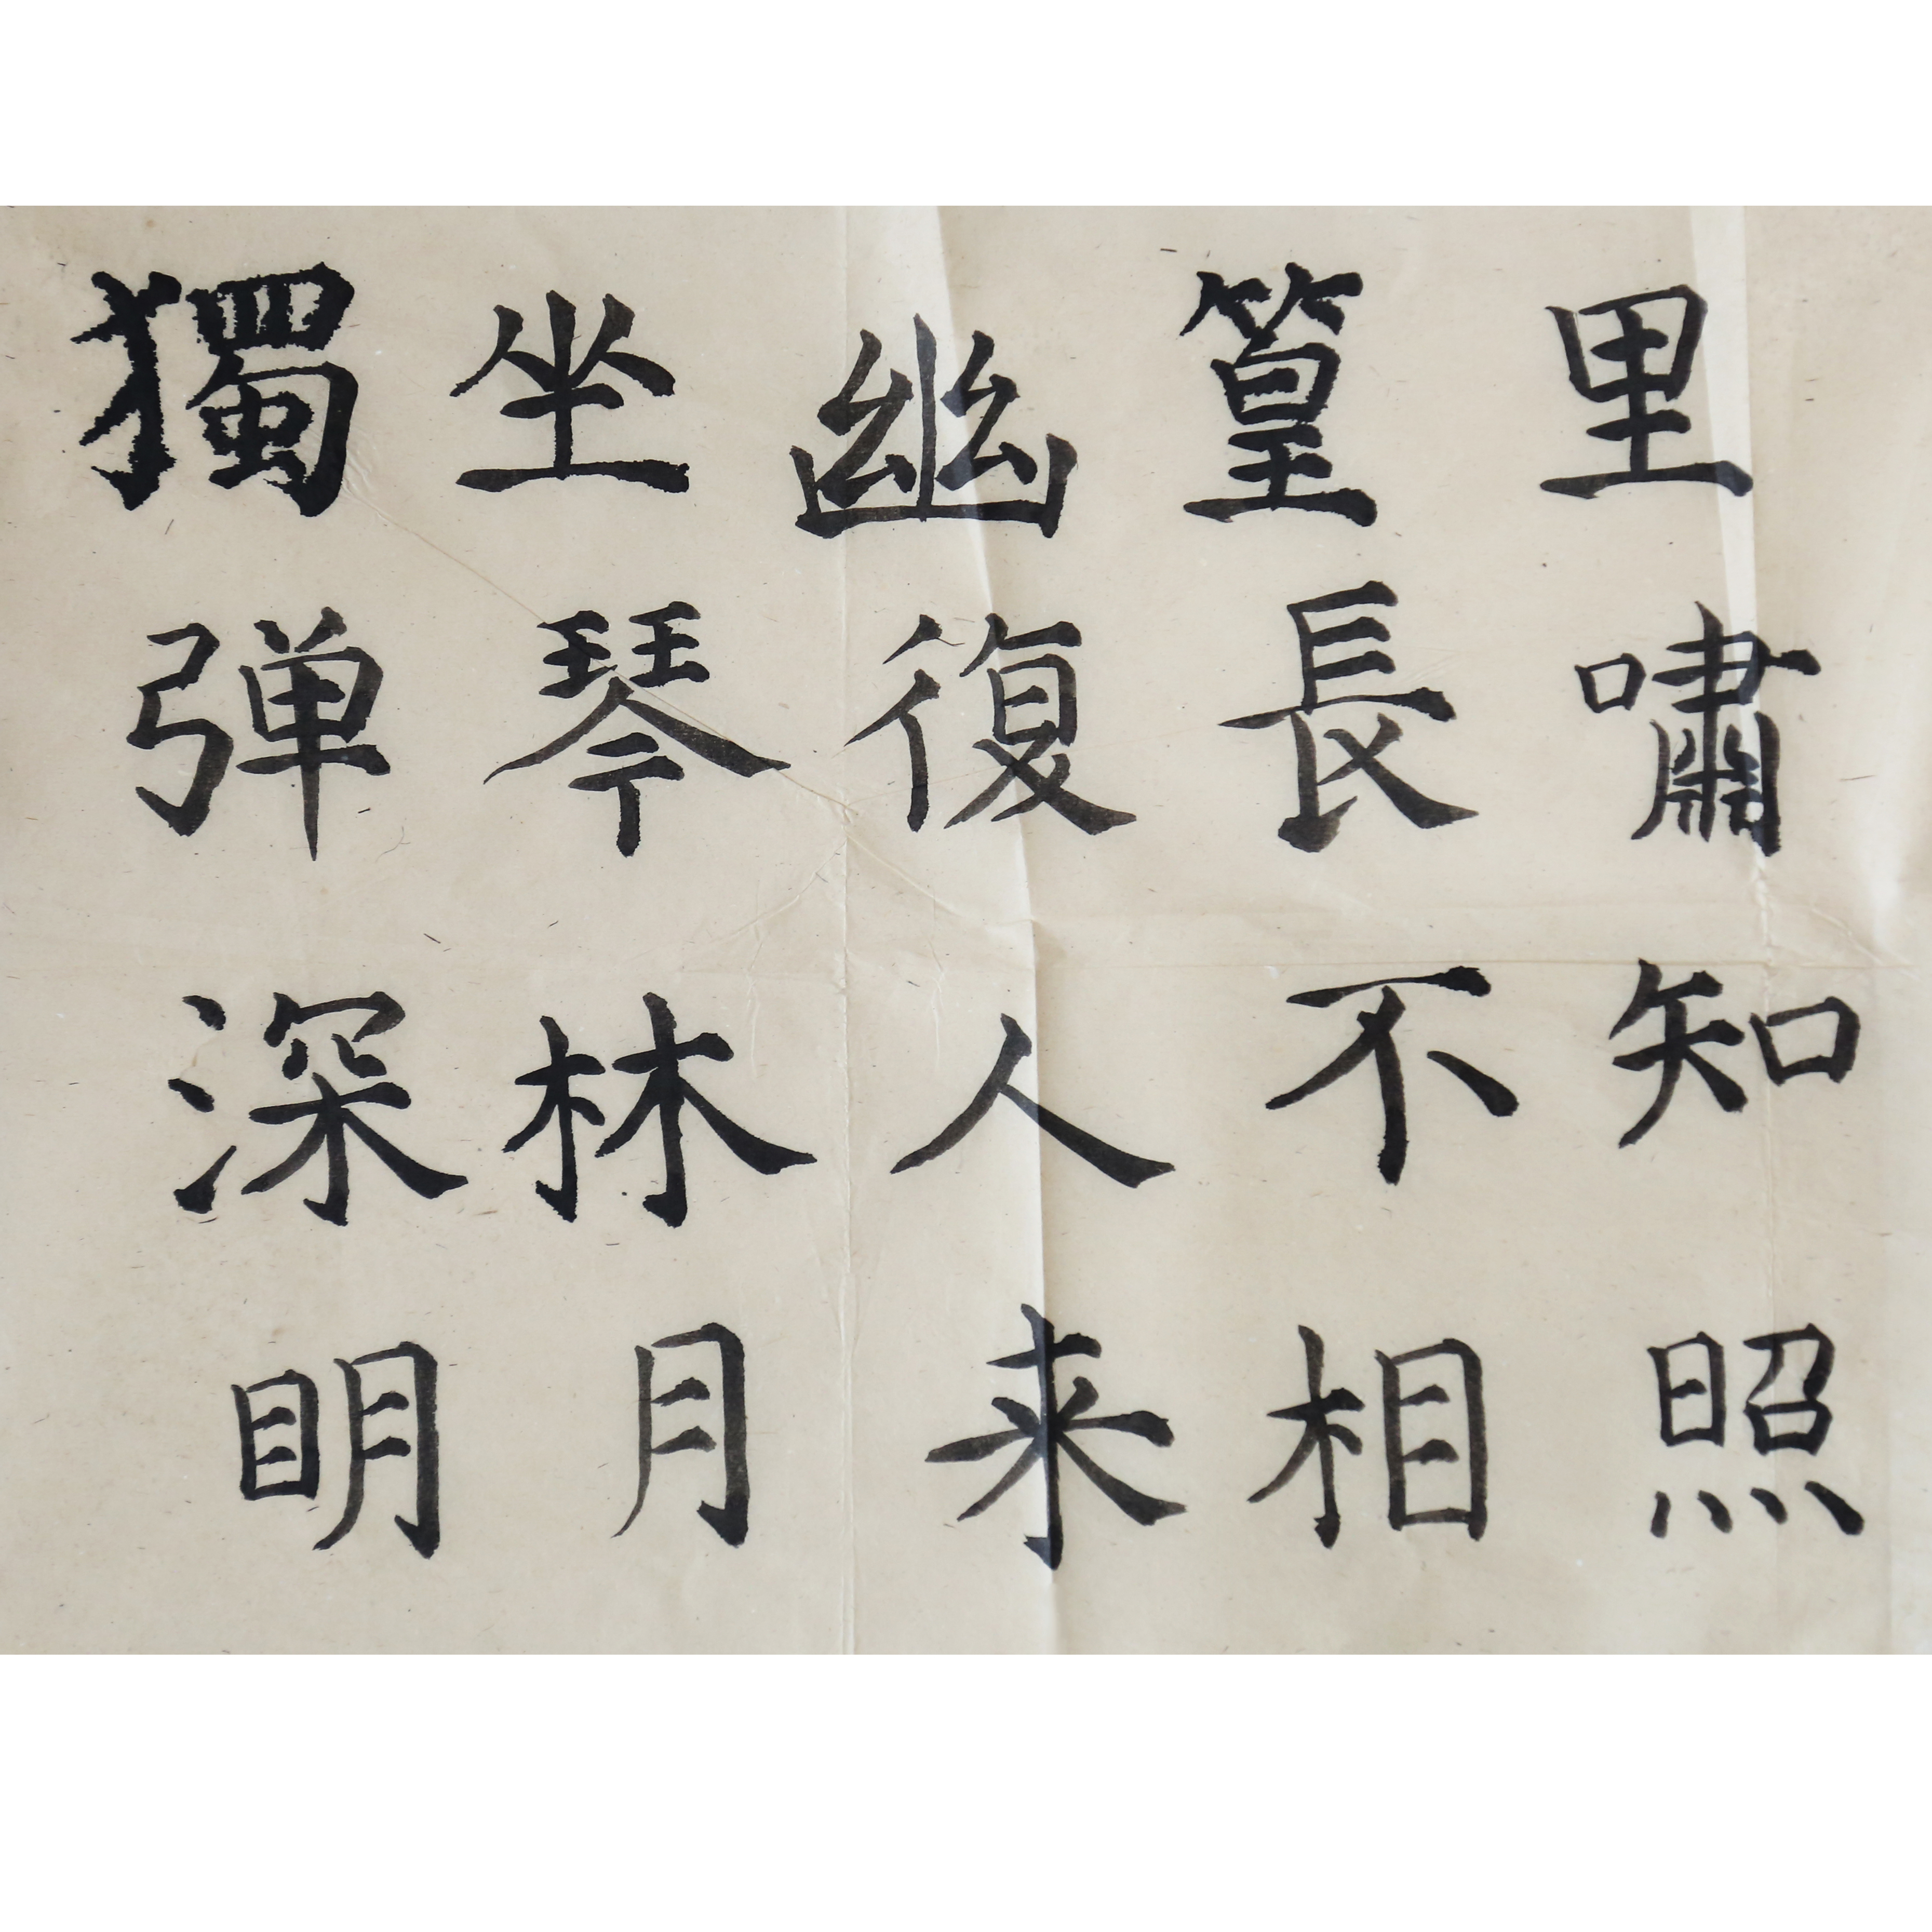 獨坐幽篁里
弹琴復長嘯
深林人不知
明月来相照